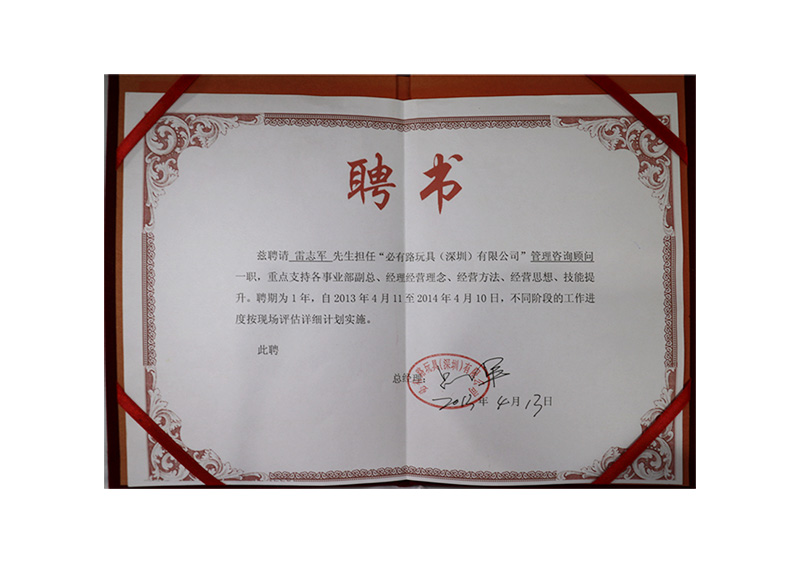 聘书
兹聘请 雷志军 先生担任“必有路玩具（深圳）有限公司”管理咨询顾问
一职，重点支持各事业部副总、经理经营理念、经营方法、经营思想、技能提
升。聘期为1年，自2013年4月11至2014年4月10日，不同阶段的工作进
度按现场评估详细计划实施。
此聘
总经理：
必有路玩具(深圳)有限公司
2013年4月13日